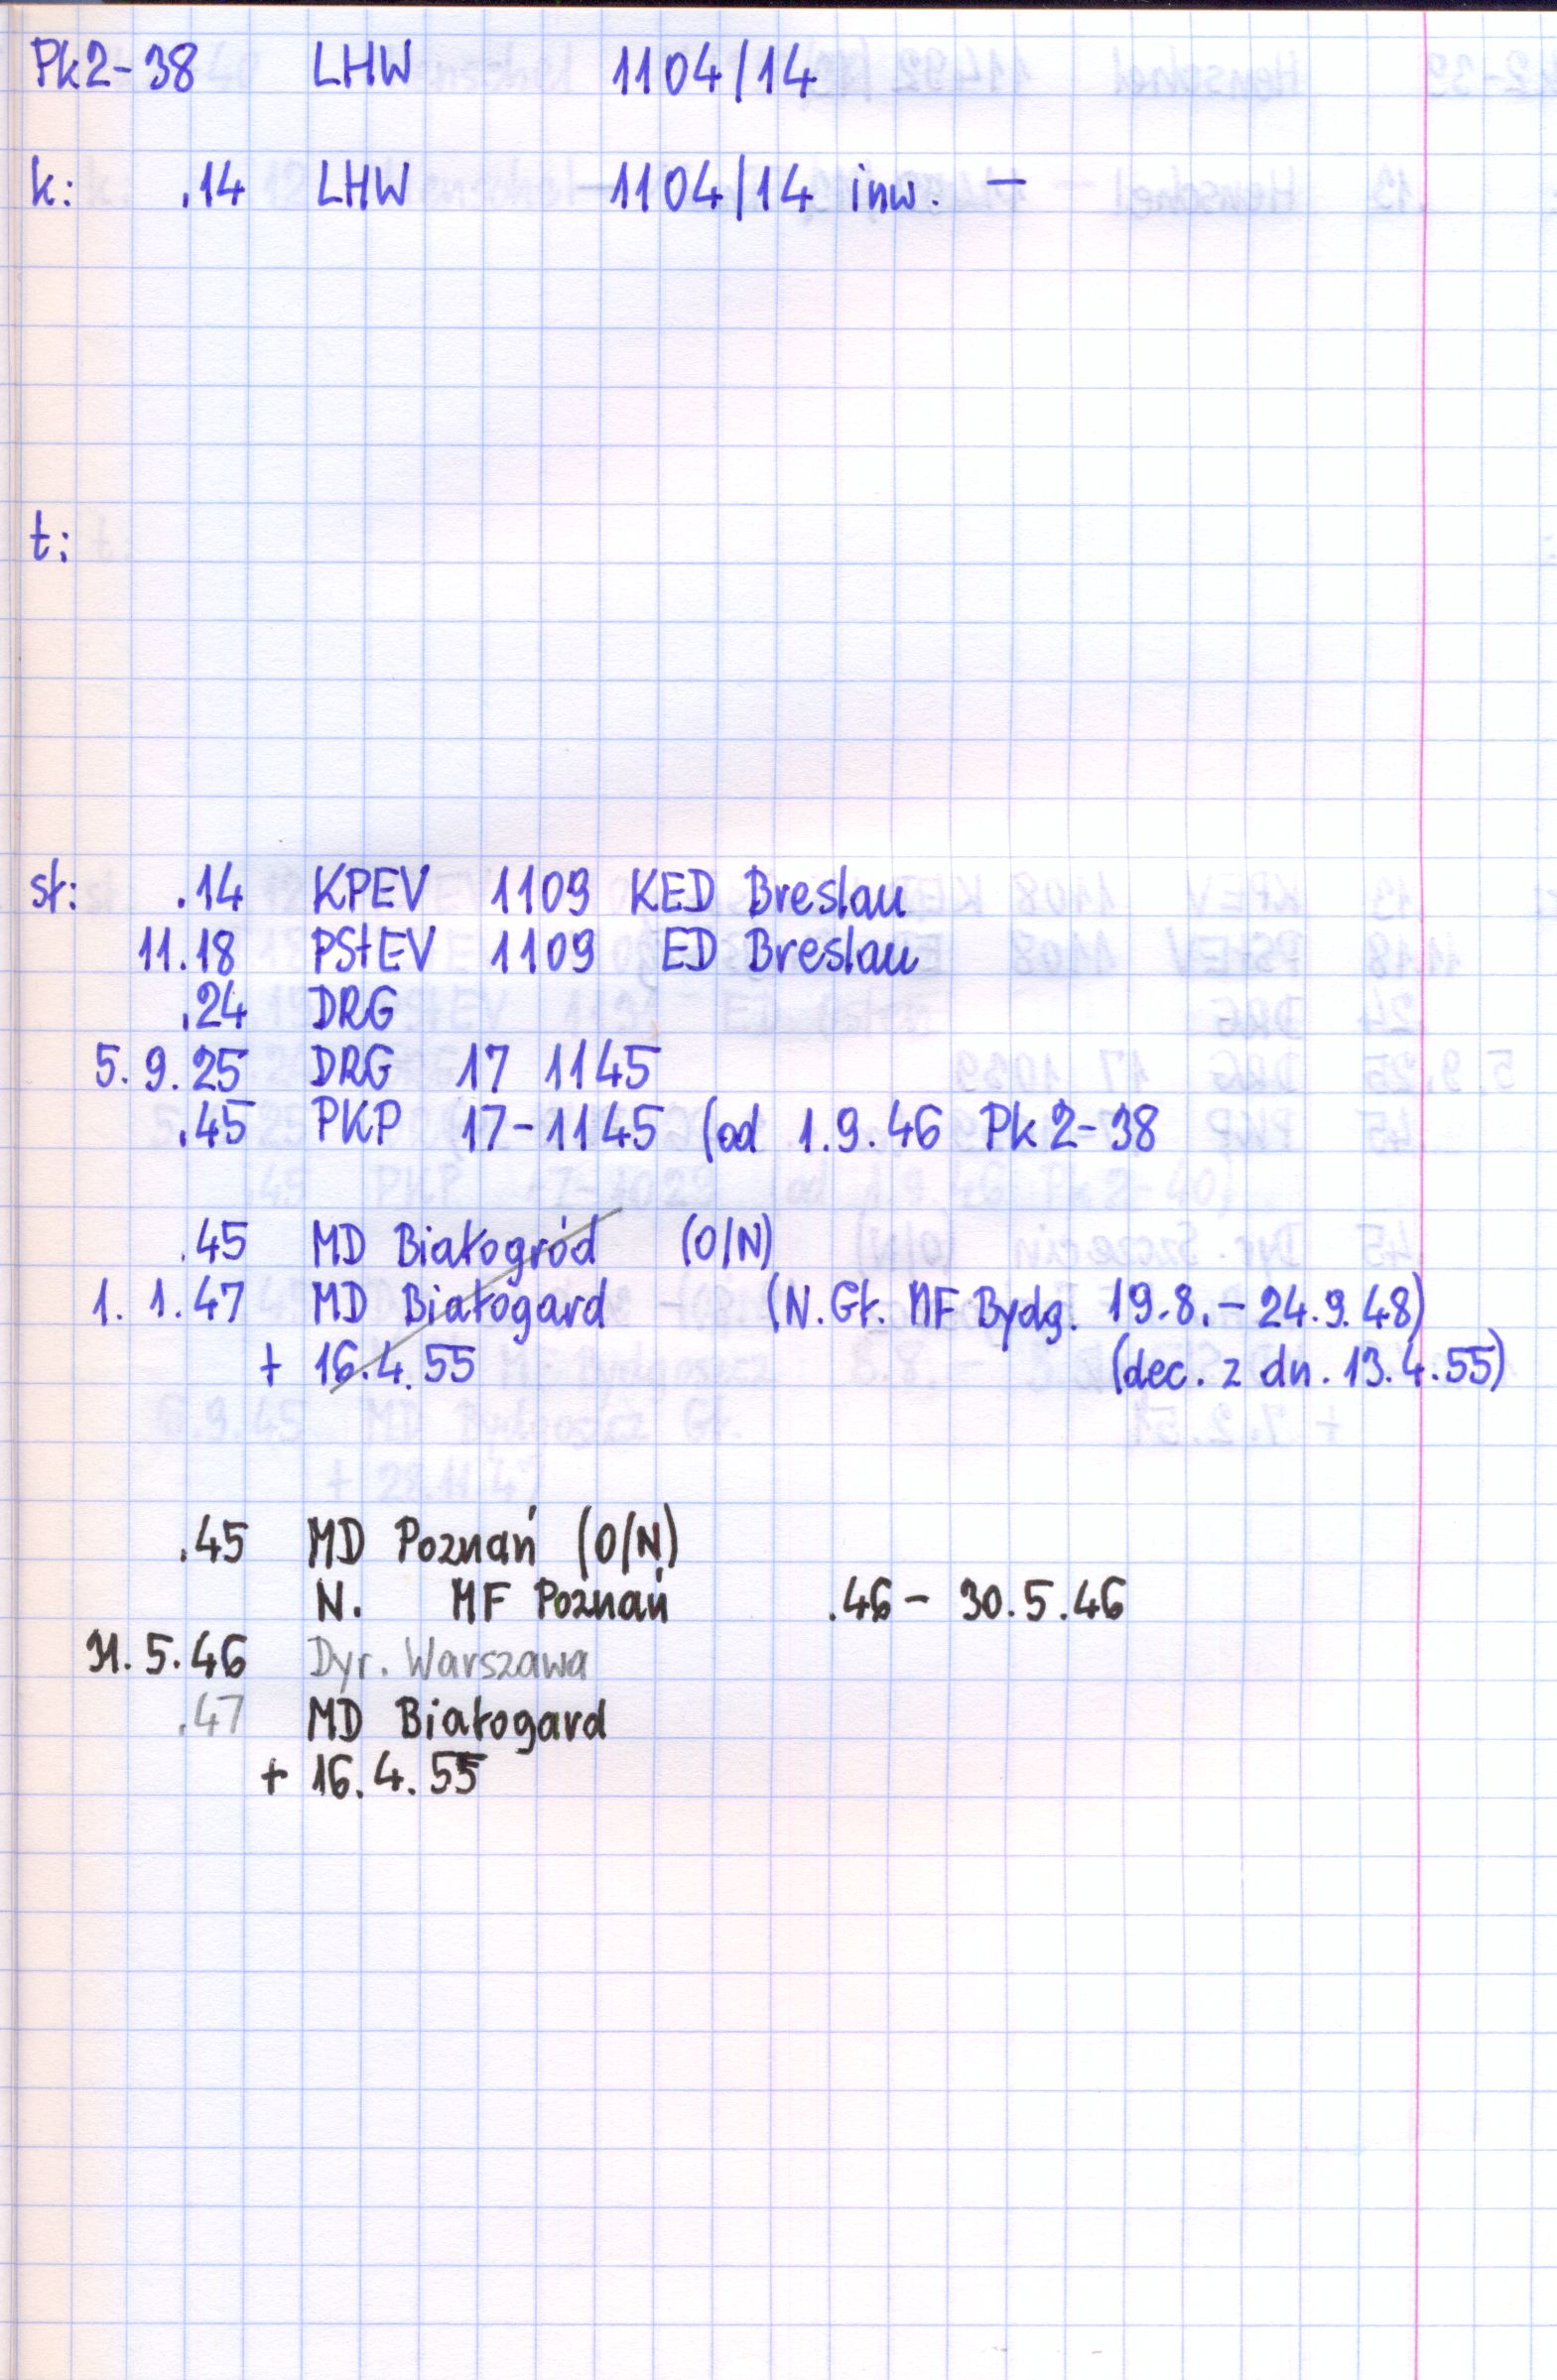 Pk2-38 LHW 1104/14
k: .14 LHW 1104/14 inw. –
t:
st: .14 KPEV 1109 KED Breslau
11.18 PStEV 1109 ED Breslau
.24 DRG
5.9.25 DRG 17 1145
.45 PKP 17-1145 (od 1.9.46 Pk2-38
.45 MD Białogród (O/N)
1.1.47 MD Białogard (N.Gł. MF Bydg. 19.8.–24.9.48)
+ 16.4.55 (dec. z dn. 13.4.55)
.45 MD Poznań (O/N)
N. MF Poznań .46 – 30.5.46
31.5.46 Dyr. Warszawa
.47 MD Białogard
+ 16.4.55